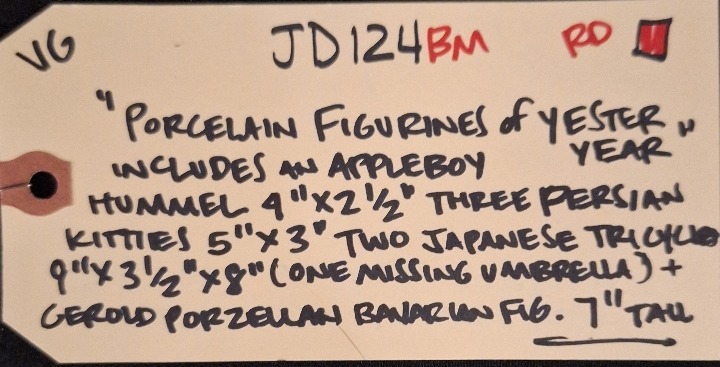 VG JD124BM RD
"PORCELAIN FIGURINES of YESTER
YEAR"
INCLUDES AN APPLEBOY
HUMMEL 4"X2½" THREE PERSIAN
KITTIES 5"X3" TWO JAPANESE TRICYCLE
9"X3½"X8" (ONE MISSING UMBRELLA) +
GEROLD PORZELLAN BAVARIAN FIG. 7" TALL